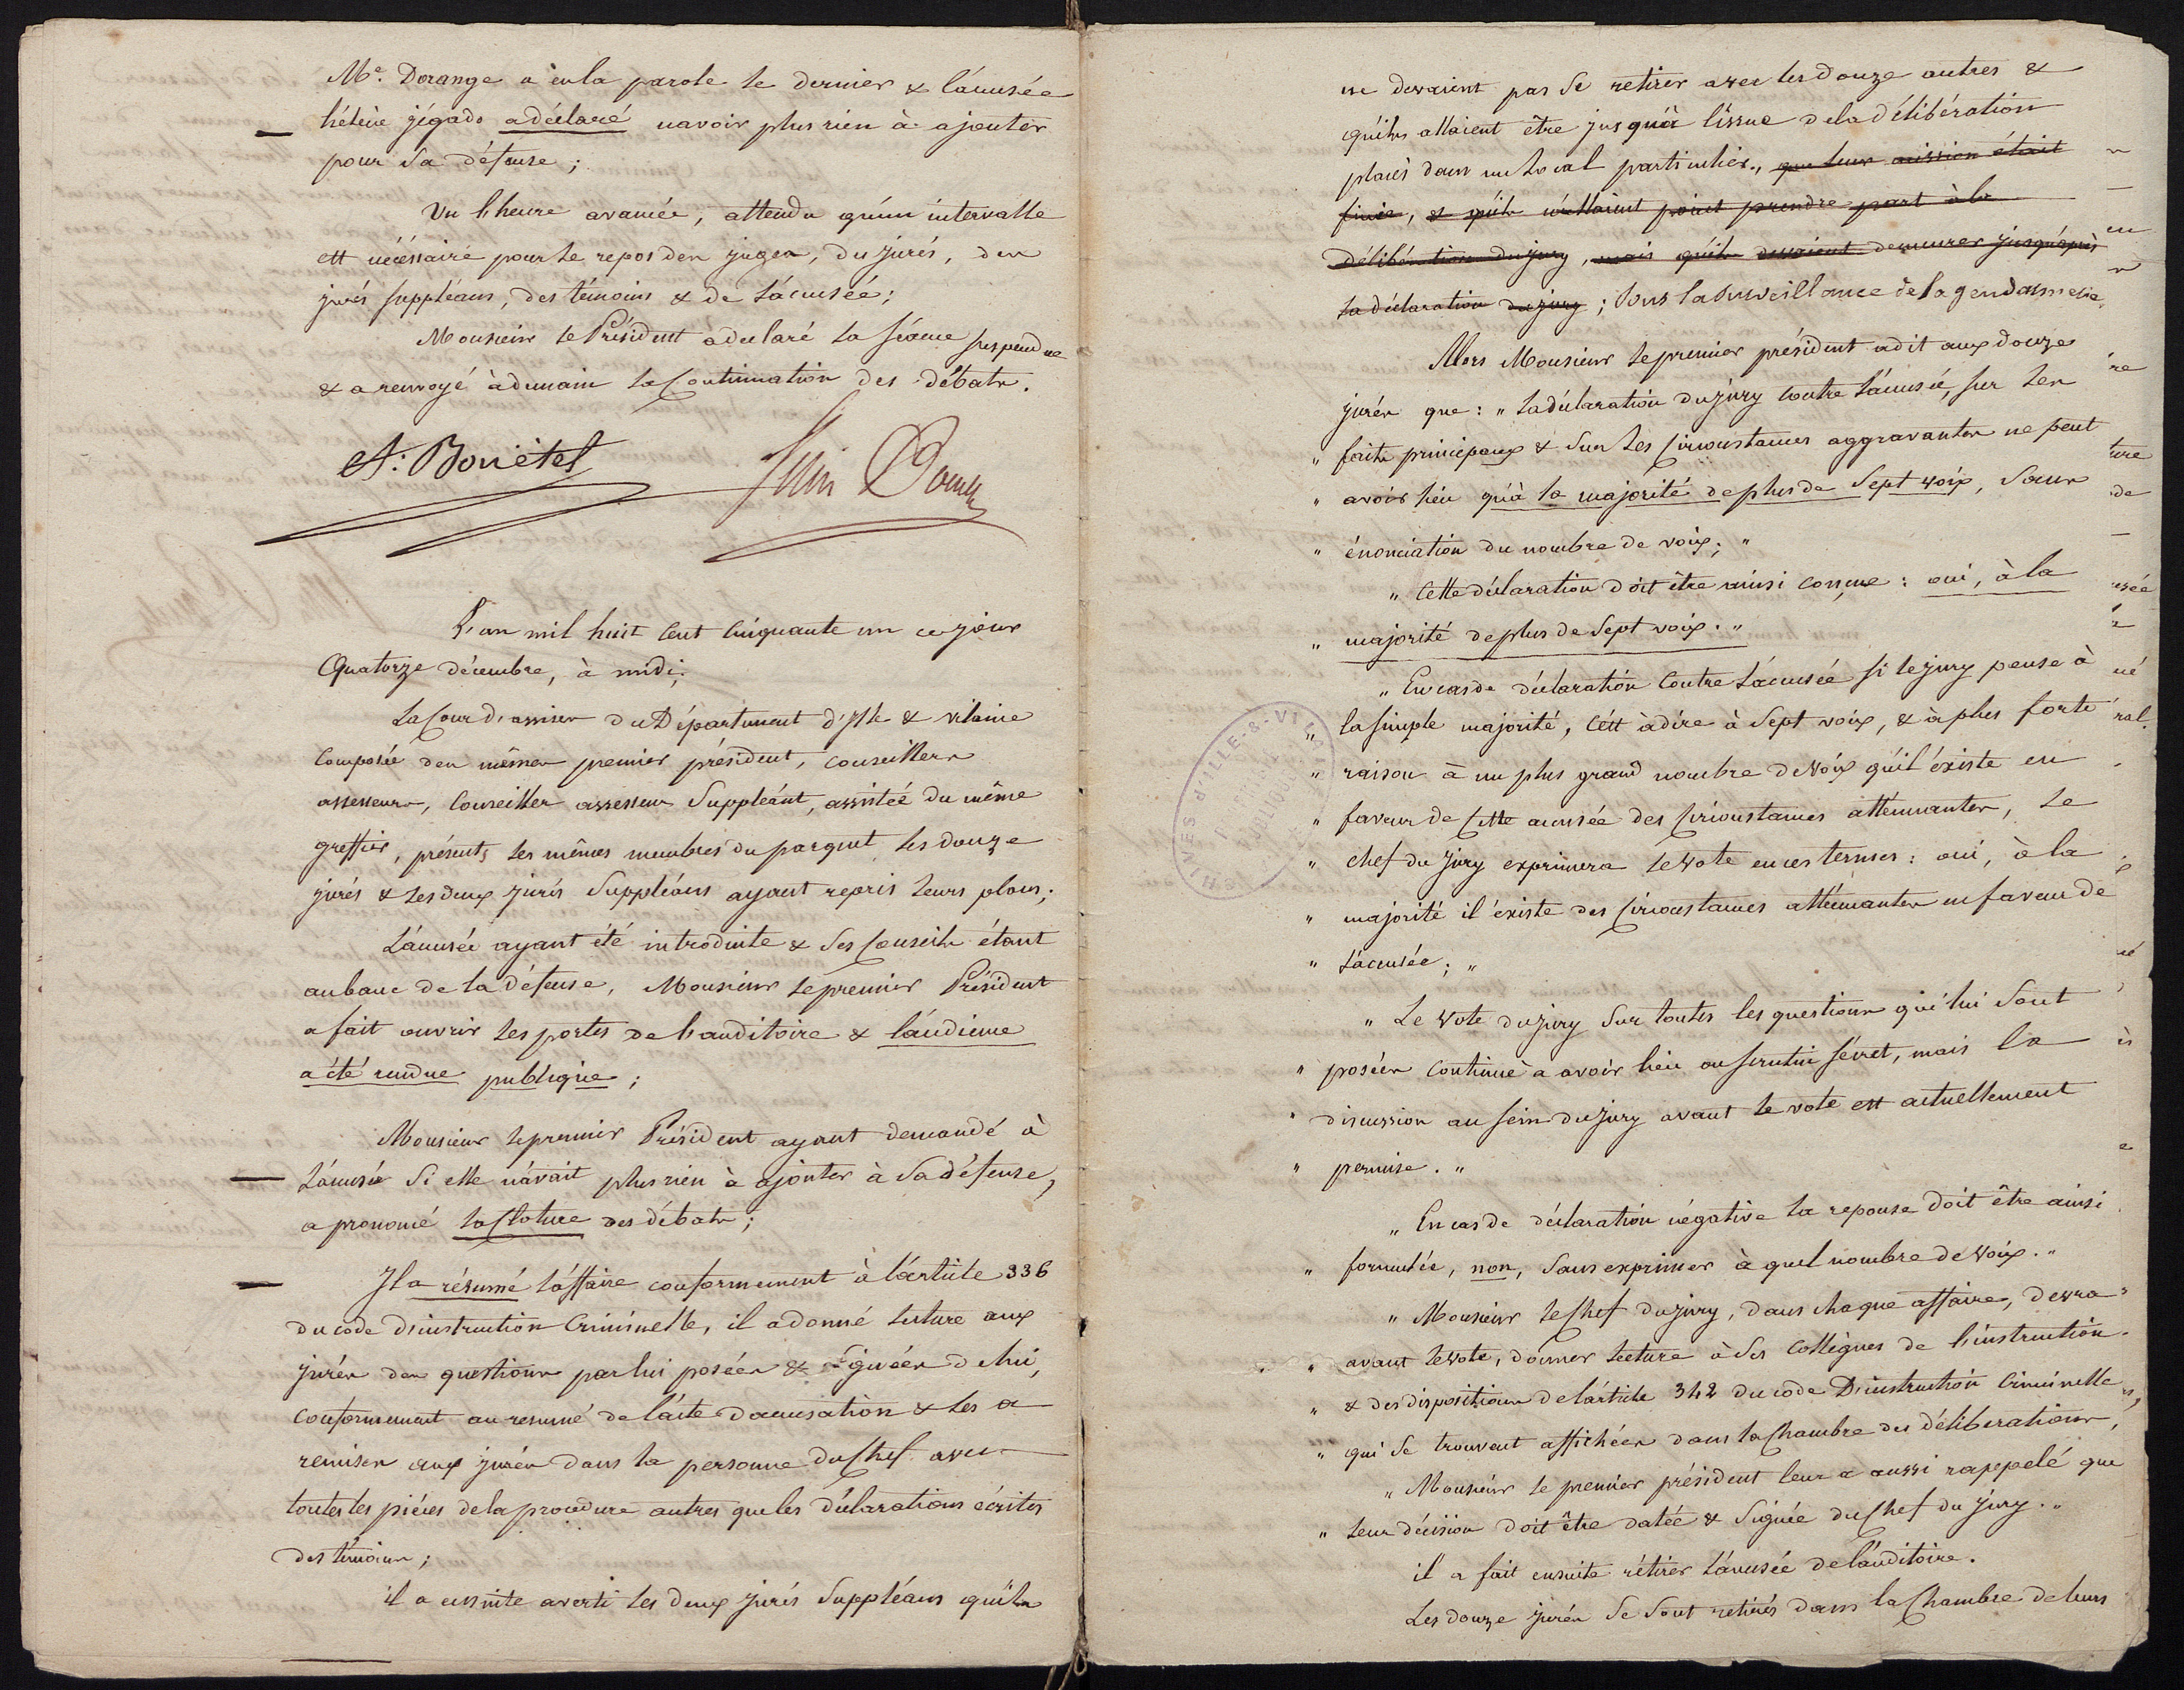 Me. Dorange a eu la parole le dernier & l'accusée
hélène jégado a déclaré n'avoir plus rien à ajouter
pour sa défense ;
Vu l'heure avancée, attendu qu'un intervalle
est nécessaire pour le repos des juges, des jurés, des
jurés suppléans, des témoins & de l'accusée ;
Monsieur le Président a déclaré la séance suspendue
& a renvoyé à demain la continuation des débats.
Boucly
L'an mil huit cent cinquante un ce jour
Quatorze décembre, à midi ;
La Cour d'assises du Département d'Ille & vilaine
composée des mêmes premier président, conseillers
assesseurs, Conseiller assesseur Suppléant, assistée du même
greffier, présents les mêmes membres du parquet, les douze
jurés & les deux jurés Suppléans ayant repris leurs places ;
L'accusée ayant été introduite & ses Conseils étant
au banc de la défense, Monsieur le premier Président
a fait ouvrir les portes de l'auditoire & l'audience
a été rendue publique ;
Monsieur le premier Président ayant demandé à
l'accusée si elle n'avait plus rien à ajouter à sa défense,
a prononcé la Cloture des débats ;
Il a résumé l'affaire conformement à l'article 336
du code d'instruction Criminelle, il a donné lecture aux
jurés des questions par lui posées & signées de lui,
conformement au resumé de l'acte d'accusation & les a
remises aux jurés dans la personne du Chef avec
toutes les pièces de la procédure autres que les déclarations écrites
des témoins ;
il a ensuite averti les deux jurés Suppléans qu'ils
ne devaient pas se retirer avec les douze autres &
qu'ils allaient être jusqu'à l'issue de la délibération
placés dans un local particulier., que leur mission était
finie, & qu'ils n'allaient point prendre part à la
délibération du jury, mais qu'ils devaient demeurer jusqu'après
la déclaration du jury ; sous la surveillance de la gendarmerie.
Alors Monsieur le premier président a dit aux douze
jurés que : " la déclaration du jury contre l'accusée, sur les
" faits principaux & sur les circonstances aggravantes ne peut
" avoir lieu qu'à la majorité de plus de Sept voix, Sans
" énonciation du nombre de voix ; "
" Cette déclaration doit être ainsi conçue : oui, à la
" majorité de plus de Sept voix. "
" En cas de déclaration contre l'accusée si le jury pense à
" la simple majorité, c'est à dire à Sept voix, & à plus forte
" raison à un plus grand nombre de voix qu'il existe en
" faveur de cette accusée des circonstances atténuantes, le
" chef du Jury exprimera le vote en ces termes : oui, à la
" majorité il existe des circonstances atténuantes en faveur de
" l'accusée ; "
" Le vote du jury sur toutes les questions qui lui sont
" posées continue à avoir lieu au scrutin secret, mais la
" discussion au sein du jury avant le vote est actuellement
" permise. "
" En cas de déclaration négative la reponse doit être ainsi
" formulée, non, sans exprimer à quel nombre de voix. "
" Monsieur le Chef du jury, dans chaque affaire, devra
" avant le vote, donner lecture à ses collègues de l'instruction
" & des dispositions de l'article 342 du code D'instruction Criminelle
" qui se trouvent affichées dans la Chambre des délibérations,
" Monsieur le premier président leur a aussi rappelé que
" leur décision doit être datée & Signée du Chef du jury. "
il a fait ensuite rétirer l'accusée de l'auditoire.
Les douze jurés se sont retirés dans la Chambre de leurs